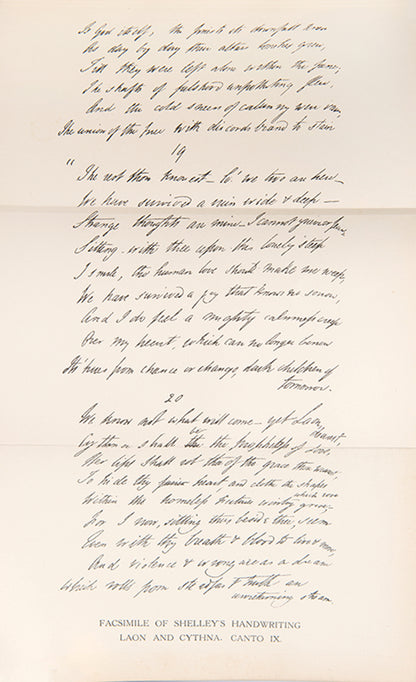 As God itself, the priests its downfall knew
As day by day their altars lonelier grew,
Till they were left alone within the fane;
The shafts of falsehood unpolluting flew,
And the cold sneers of calumny were vain,
The union of the free with discords brand to stain
19
"The rest thou knowest — Lo! we two are here —
We have survived a ruin wide & deep —
Strange thoughts are mine. I cannot grieve or fear,
Sitting with thee upon this lonely steep
I smile, tho human love should make me weep,
We have survived a joy that knows no sorrow,
And I do feel a mighty calmness creep
Over my heart, which can no longer borrow
Its hues from chance or change, dark children of
tomorrow.
20
We know not what will come — yet Laon, dearest,
Cythna shall be the prophetess of Love,
Her lips shall rob thee of the grace thou wearest,
To hide thy heart and clothe the shapes which rove
Within the homeless futures wintry grove,
For I now, sitting thus beside thee, seem
Even with thy breath & blood to live & move,
And violence & wrong are as a dream
Which rolls from stedfast truth an
unreturning stream.
FACSIMILE OF SHELLEY'S HANDWRITING
LAON AND CYTHNA. CANTO IX.